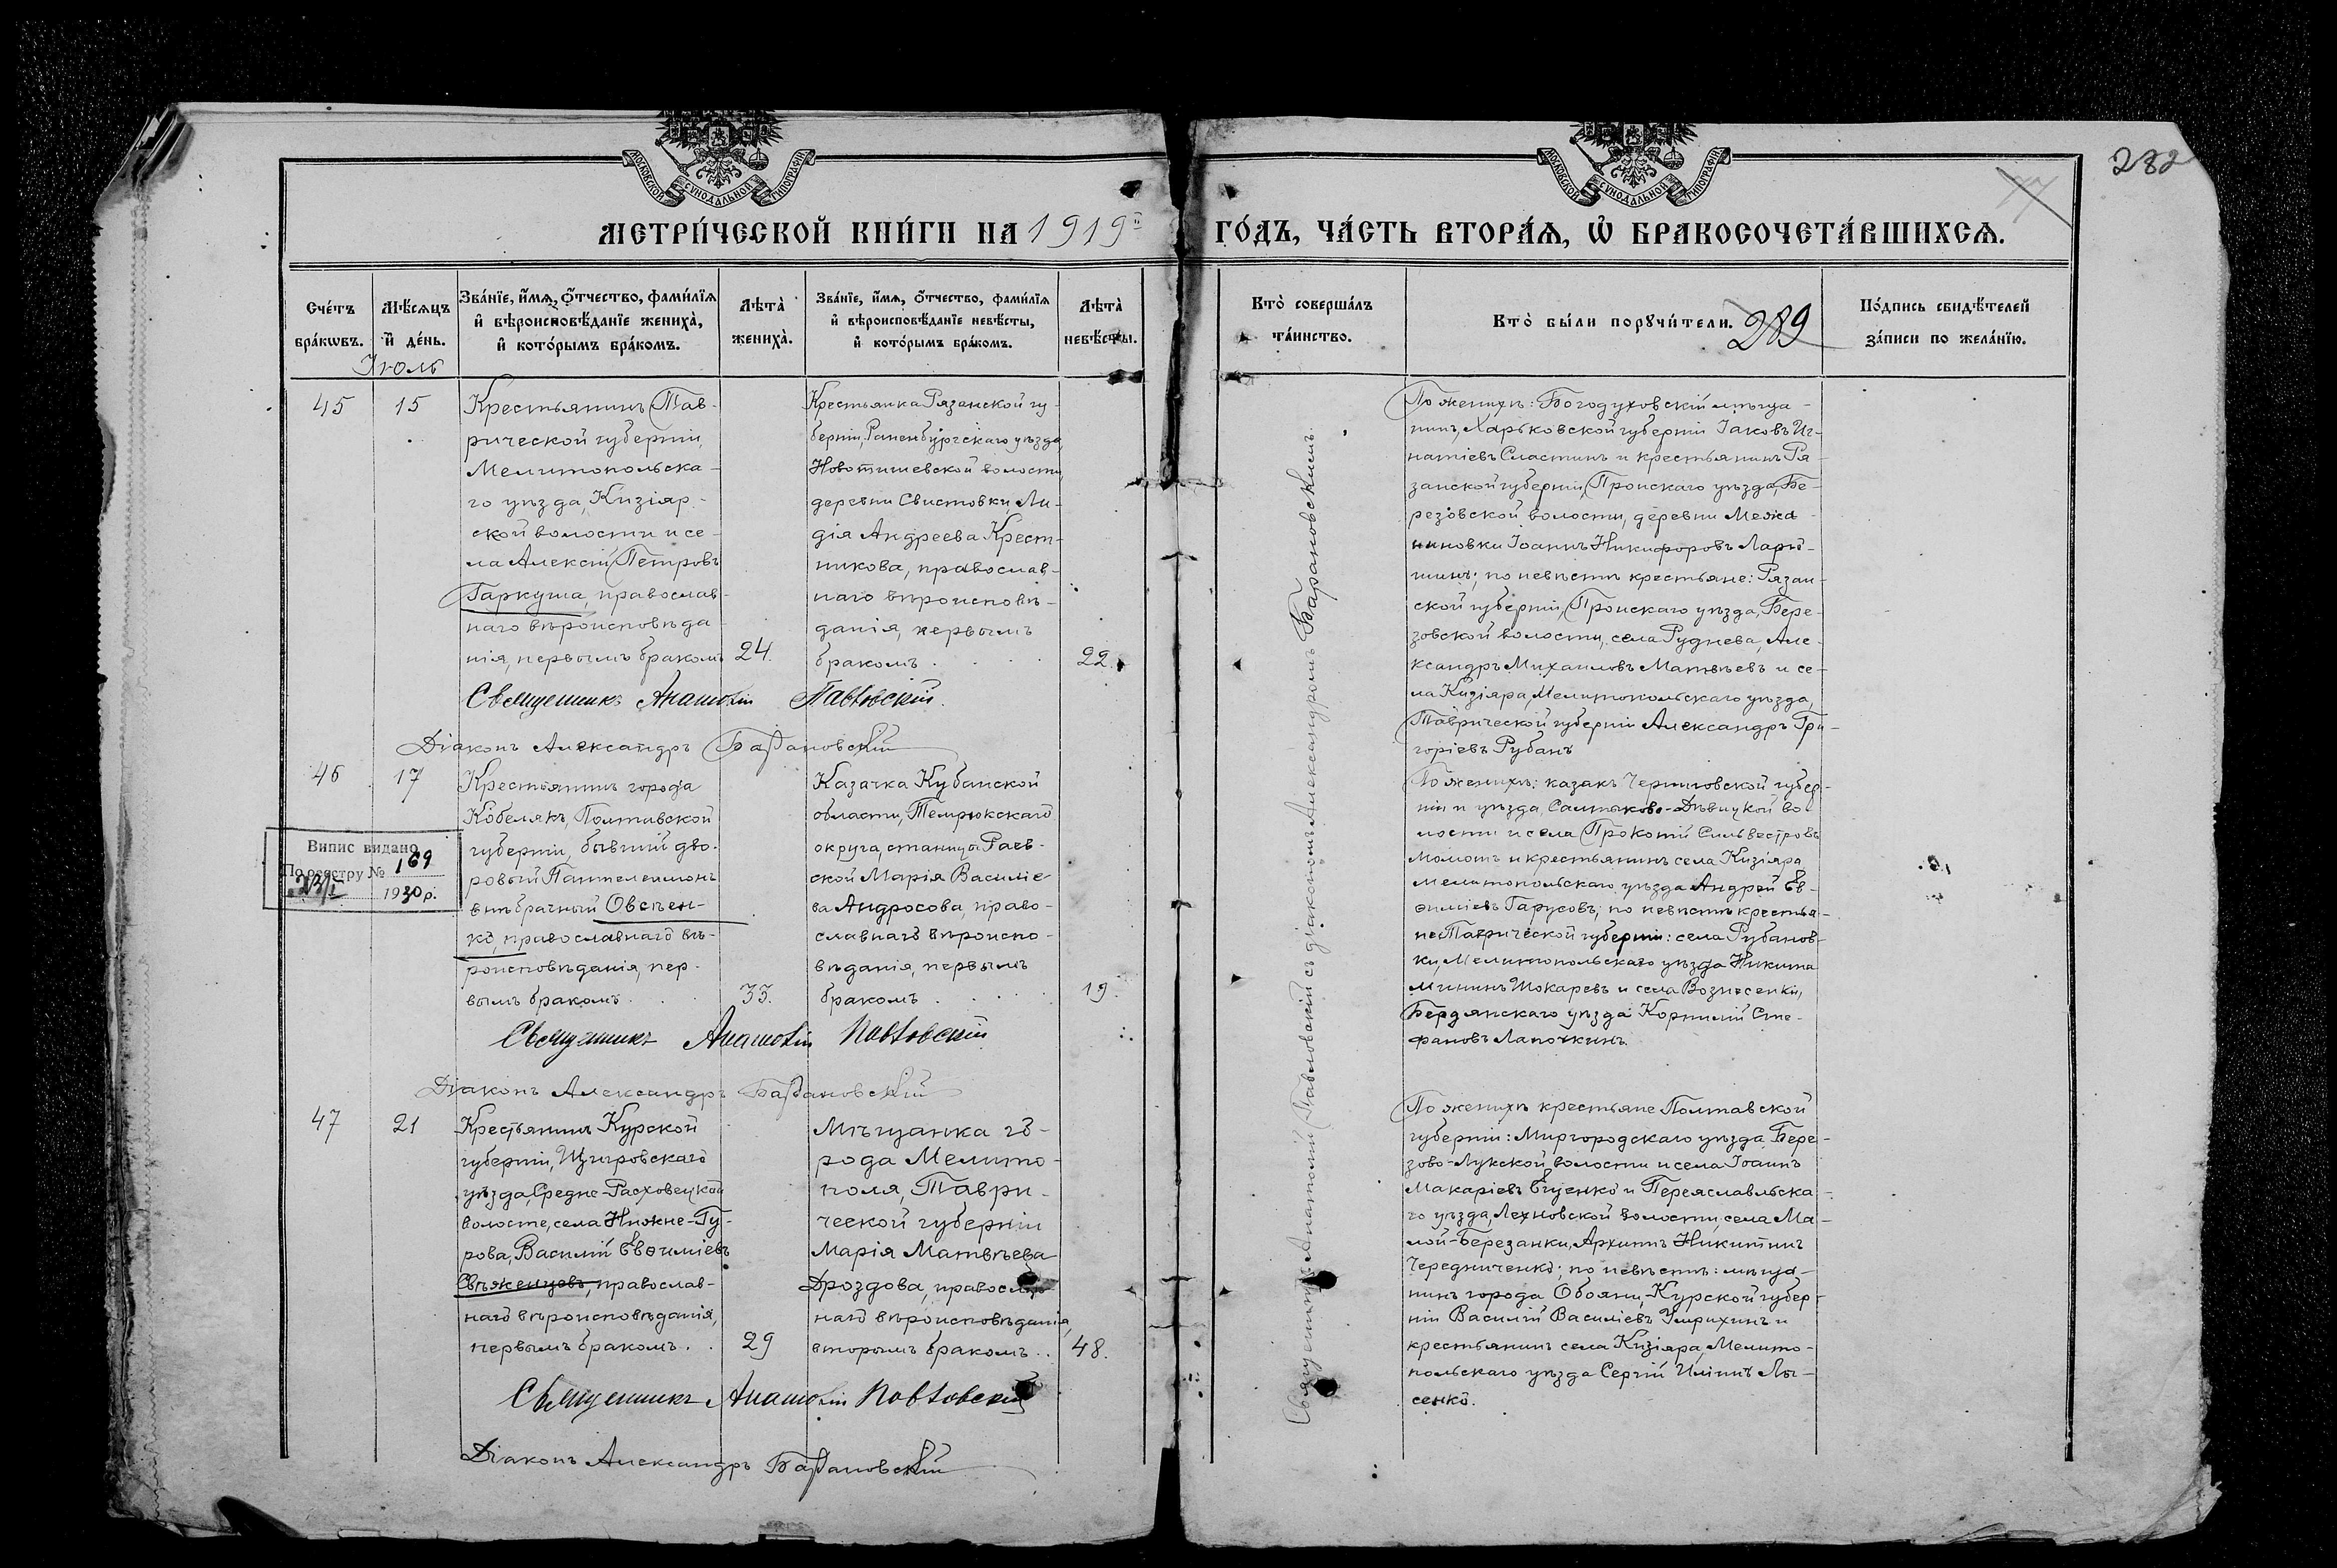 МОСКОВСКОЙ СѴНОДАЛЬНОЙ ТИПОГРАФІИ
МОСКОВСКОЙ СѴНОДАЛЬНОЙ ТИПОГРАФІИ
282
77
МЕТРИ́ЧЕСКОЙ КНИ́ГИ НА 1919й ГО́ДЪ, ЧА́СТЬ ВТОРА́Ѧ, Ѽ БРАКОСОЧЕТА́ВШИХСѦ.
Сче́тъ
бра́кѡвъ.
Мѣ́сѧцъ
и҆ де́нь.
Зва́нїе, и҆́мѧ, ѻ҆́тчество, фами́лїѧ
и҆ вѣроисповѣ́данїе жениха̀,
и҆ кото́рымъ бра́комъ.
Лѣта̀
жениха̀.
Зва́нїе, и҆́мѧ, ѻ҆́тчество, фами́лїѧ
и҆ вѣроисповѣ́данїе невѣ́сты,
и҆ кото́рымъ бра́комъ.
Лѣта̀
невѣ́сты.
Кто̀ соверша́лъ
та́инство.
Кто̀ бы́ли порꙋчи́тели.
289
По́дпись свидѣ́телей
за́писи по жела́нїю.
Іюль
45
15
Крестьянинъ Тав-
рической губерніи,
Мелитопольска-
го уѣзда, Кизіяр-
ской волости и се-
ла Алексій Петровъ
Гаркуша, православ-
наго вѣроисповѣда-
нія, первымъ бракомъ
24.
Крестьянка Рязанской гу-
берніи, Раненбургскаго уѣзда,
Новотишевской волости,
деревни Свистовки, Ли-
дія Андреева Крест-
никова, православ-
наго вѣроисповѣ-
данія, первымъ
бракомъ . . . .
22.
Священникъ Анатолій Павловскій.
Діаконъ Александръ Барановскій
По женихѣ: Богодуховскій мѣща-
нинъ, Харьковской губерніи Іаковъ Иг-
натіевъ Сластинъ и крестьянинъ Ря-
занской губерніи, Пронскаго уѣзда, Бе-
резовской волости, деревни Межа-
ниновки Іоаннъ Никифоровъ Лары-
шинъ; по невѣстѣ крестьяне: Рязан-
ской губерніи, Пронскаго уѣзда, Бере-
зовской волости, села Руднева, Але-
ксандръ Михаиловъ Матвѣевъ и се-
ла Кизіяра, Мелитопольскаго уѣзда,
Таврической губерніи Александръ Гри-
горіевъ Рубанъ
46
17
Крестьянинъ города
Кобелякъ, Полтавской
губерніи, бывшій дво-
ровый Пантелеимонъ
внѣбрачный Овсѣен-
ко, православнаго вѣ-
роисповѣданія, пер-
вымъ бракомъ . .
33.
Казачка Кубанской
области, Темрюкскаго
округа, станицы Раев-
ской Марія Василіе-
ва Андросова, право-
славнаго вѣроиспо-
вѣданія, первымъ
бракомъ . . . .
19.
Випис видано
По реєстру № 169
23/I 1930 р.
Священникъ Анатолій Павловскій
Діаконъ Александръ Барановскій
По женихѣ: казакъ Черниговской губер-
ніи и уѣзда, Салтыково-Дѣвицкой во-
лости и села Прокопій Сильвестровъ
Молотъ и крестьянинъ села Кизіяра
Мелитопольскаго уѣзда Андрей Ев-
ѳиміевъ Гарусовъ; по невѣстѣ крестья-
не Таврической губерніи: села Рубанов-
ки, Мелитопольскаго уѣзда Никита
Мининъ Токаревъ и села Вознесенки,
Бердянскаго уѣзда Корнилій Сте-
фановъ Лапочкинъ.
47
21
Крестьянинъ Курской
губерніи, Щигровскаго
уѣзда, Средне-Расховецкой
волости, села Нижне-Гу-
рова, Василій Евѳиміевъ
Свѣженцевъ, православ-
наго вѣроисповѣданія,
первымъ бракомъ. .
29
Мѣщанка го-
рода Мелито-
поля, Таври-
ческой губерніи
Марія Матвѣева
Дроздова, православ-
наго вѣроисповѣданія,
вторымъ бракомъ. .
48.
Священникъ Анатолій Павловскій
Діаконъ Александръ Барановскій
По женихѣ крестьяне Полтавской
губерніи: Миргородскаго уѣзда Бере-
зово-Лукской волости и села Іоаннъ
Макаріевъ Еценко и Переяславльска-
го уѣзда, Лехновской волости, села Ма-
лой-Березанки, Архипъ Никитинъ
Чередниченко; по невѣстѣ: мѣща-
нинъ города Обояни, Курской губер-
ніи Василій Василіевъ Умрихинъ и
крестьянинъ села Кизіяра, Мелито-
польскаго уѣзда Сергій Иліинъ Лы-
сенко.
Священникъ Анатолій Павловскій съ діакономъ Александромъ Барановскимъ.